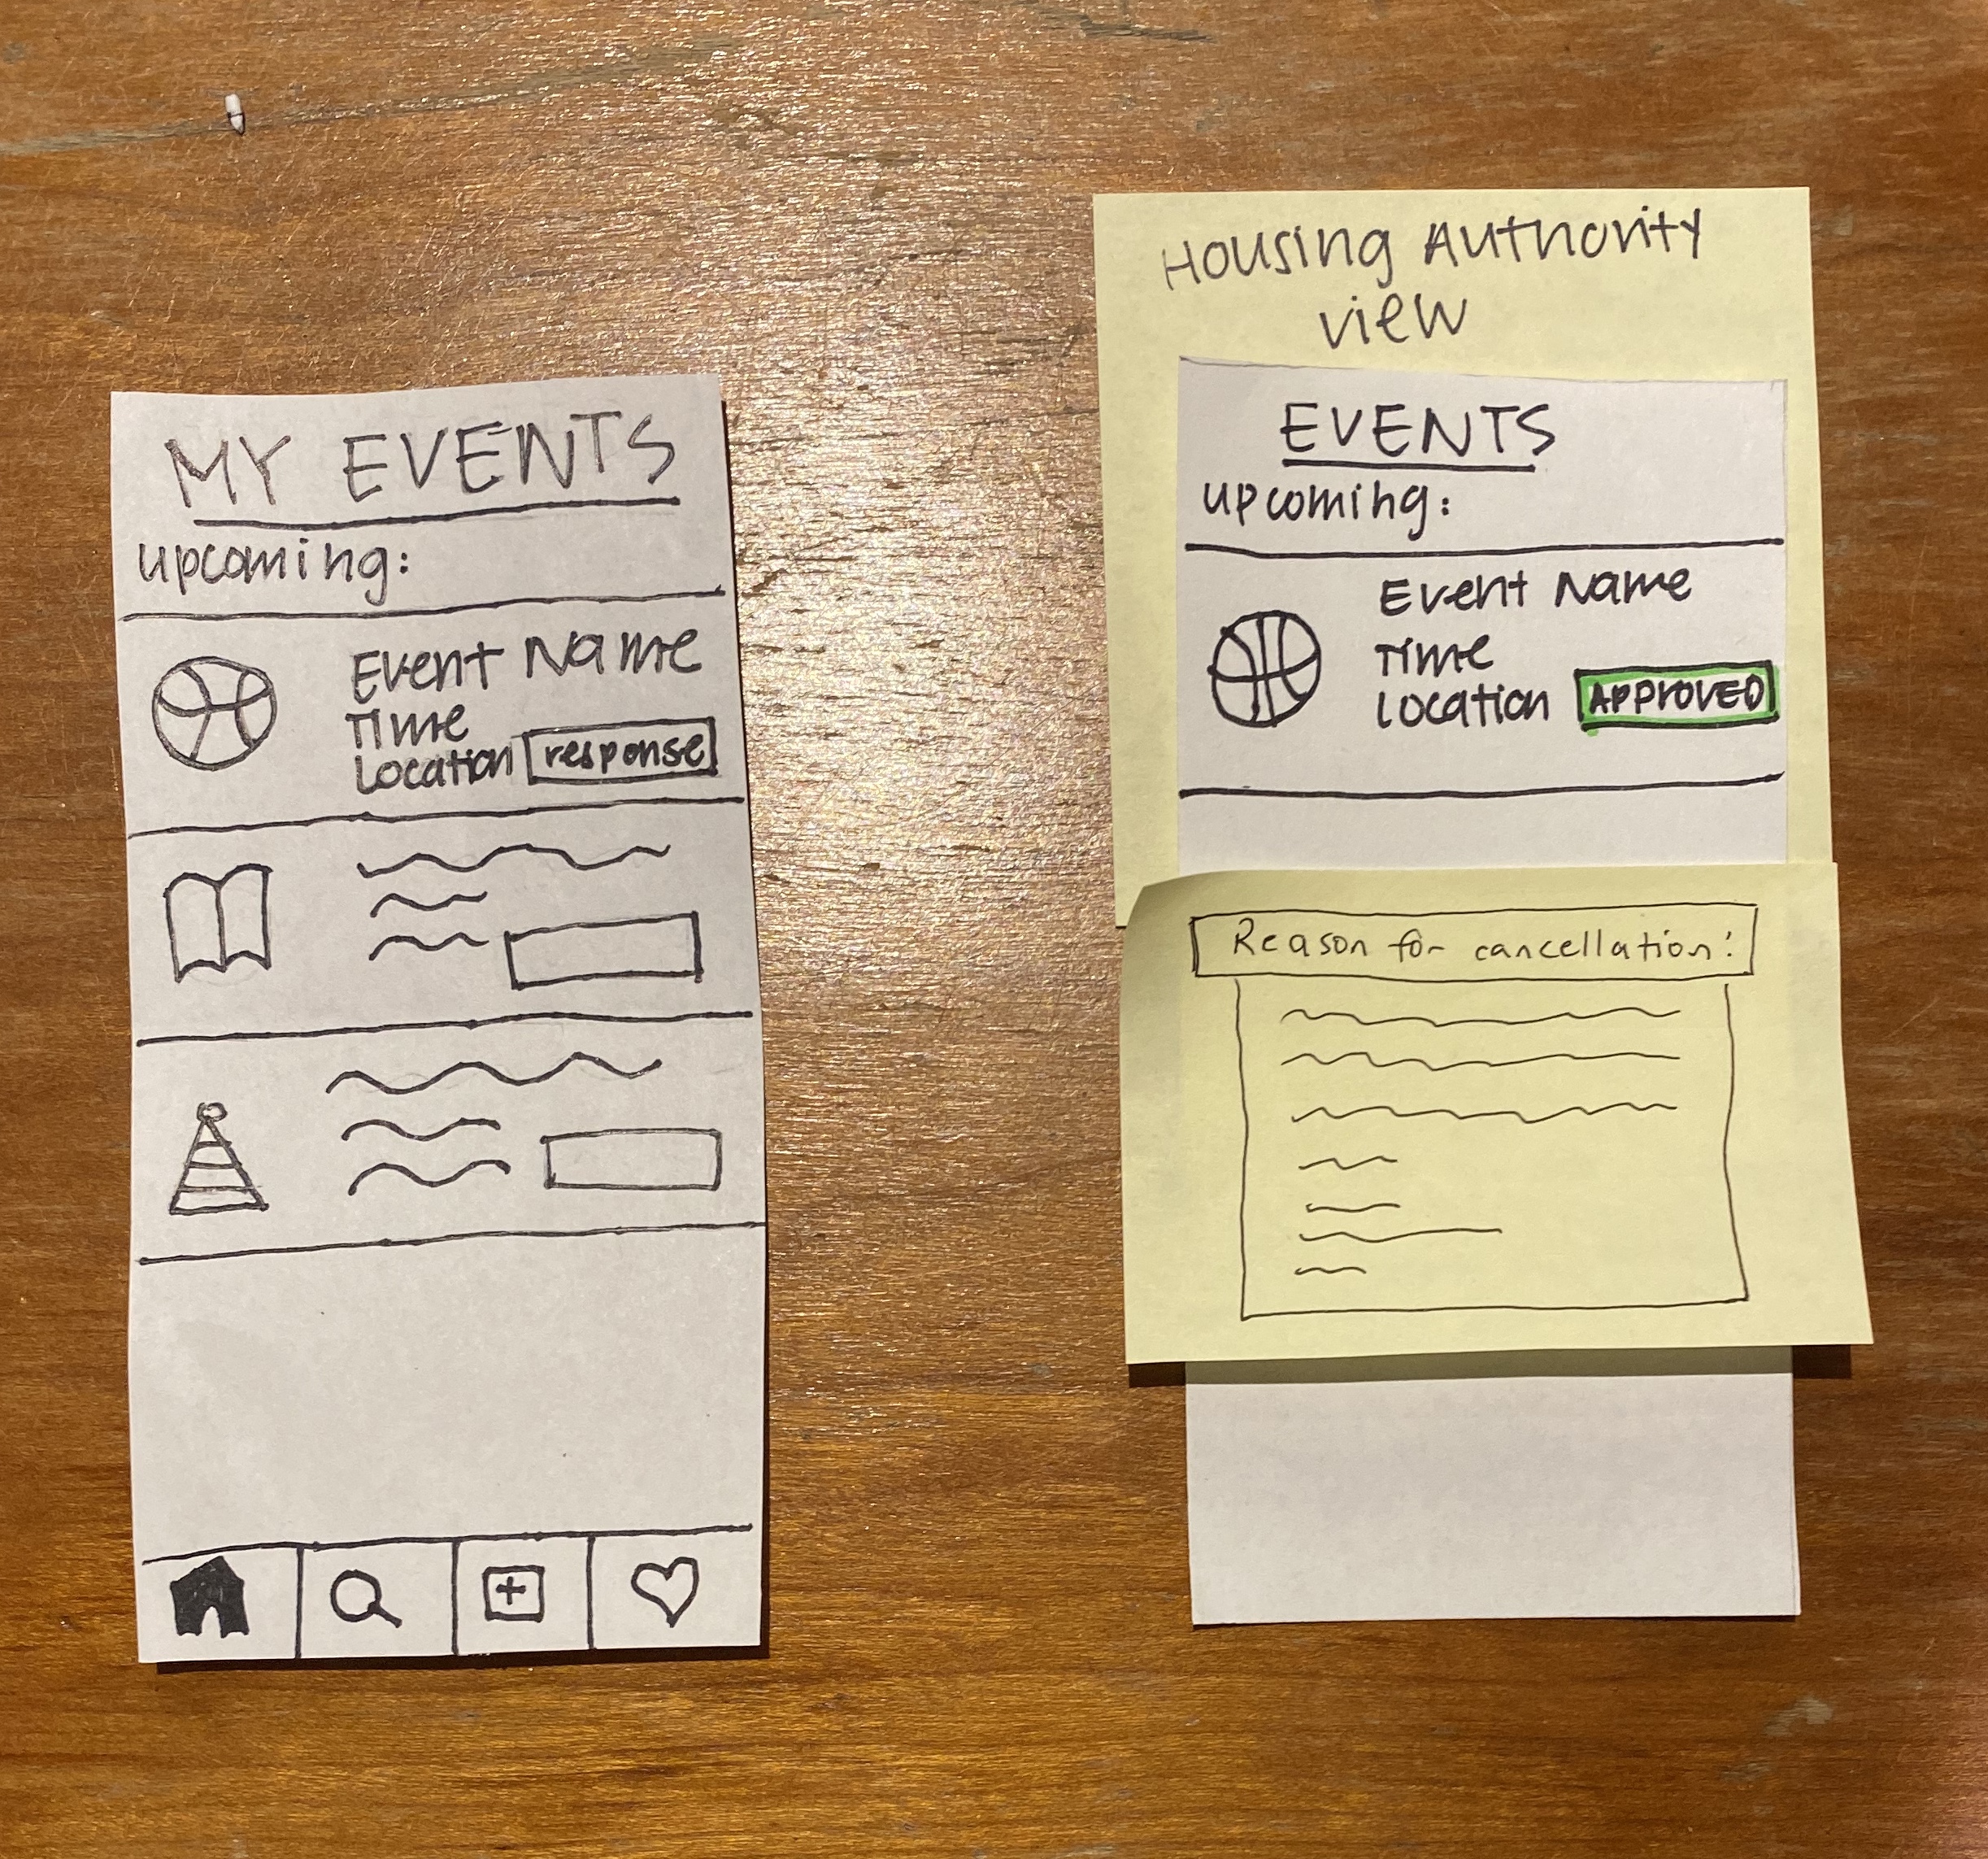 MY EVENTS
upcoming:
Event Name
Time
Location response
Housing Authority
view
EVENTS
upcoming:
Event Name
Time
Location APPROVED
Reason for cancellation: